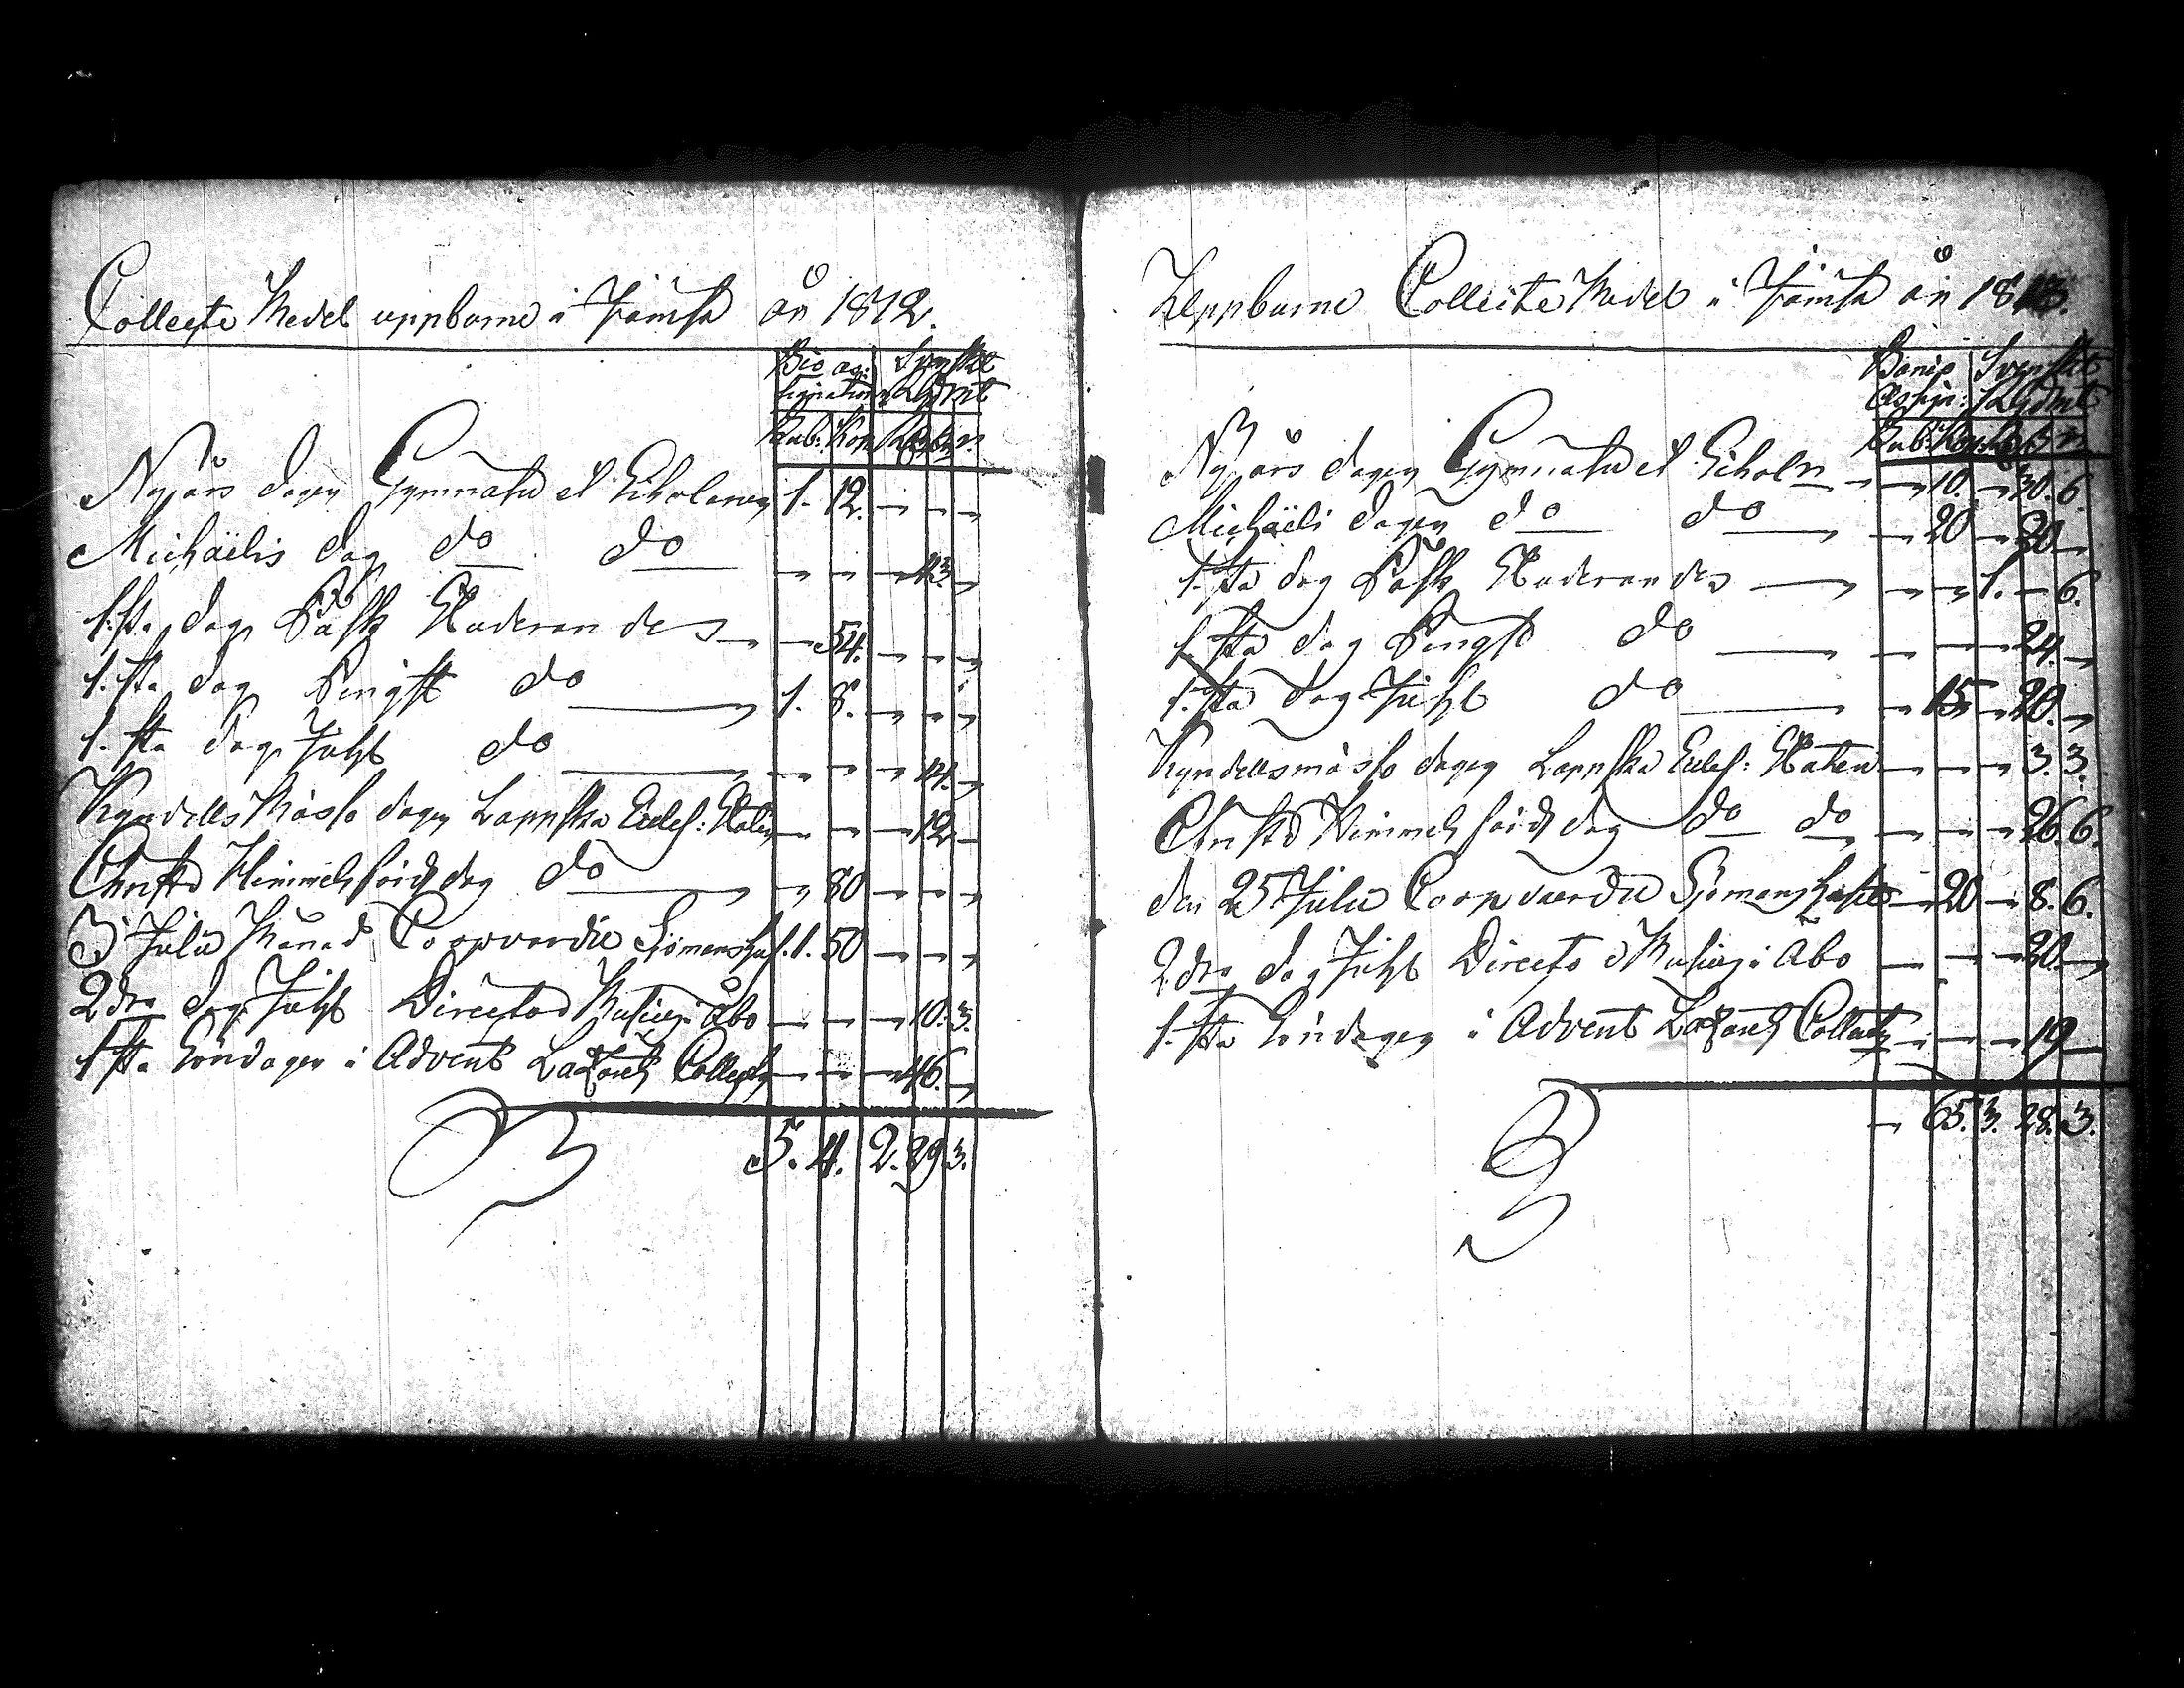 Collecte Medel uppburne i Jämsä år 1812.
Bco as: Svenskt
signation Rgdmt
Rub: Kop R s r
Nyjårs dagen Gymnasii et Scholarum 1. 12. – – –
Michäelis dag do do – – – 43 –
1.sta dag Påsk Huderandes – 54. – – –
1.sta dag Pingst do 1. 8. – – –
1.sta dag Juhl do – – – 14. –
Kyndells Mässo dagen Lappska Eccles: Staten – – – 12 –
Christi Himmelsfärds dag do – 80 – – –
I Julii Månad Coopvardie Sjömanshus. 1. 50 – – –
2dra dag Juhl Directo Musices i Åbo – – – 10. 3.
1sta Söndagen i Advent Lazarets Collect – – – 46. –
5. 4. 2. 29. 3.
Uppburne Collecte Medel i Jämsä år 1813.
Banco Svenskt
Assign: Rgdmt
Rub: Kop R s r
Nyjårs dagen Gymnasii et Schola – – 10. – 30. 6
Michäeli dagen do do – 20 – 20 –
1.sta dag Påsk Huderandes – – 1. – 6.
1.sta dag Pingst do – – – 24. –
1.sta dag Juhl do – 15 – 20. –
Kyndellsmässo dagen Lappska Eccles: Staten – – – 3. 3.
Christi Himmelsfärds dag do do – – – 26. 6.
den 25 Julii Coopvaerdie Sjömanshuset – 20 – 8. 6.
2.dra dag Juhl Directo Musices i Åbo – – – 20. –
1.sta Söndagen i Advent Lazarets Collect – – – 19 –
– 65. 3. 28. 3.